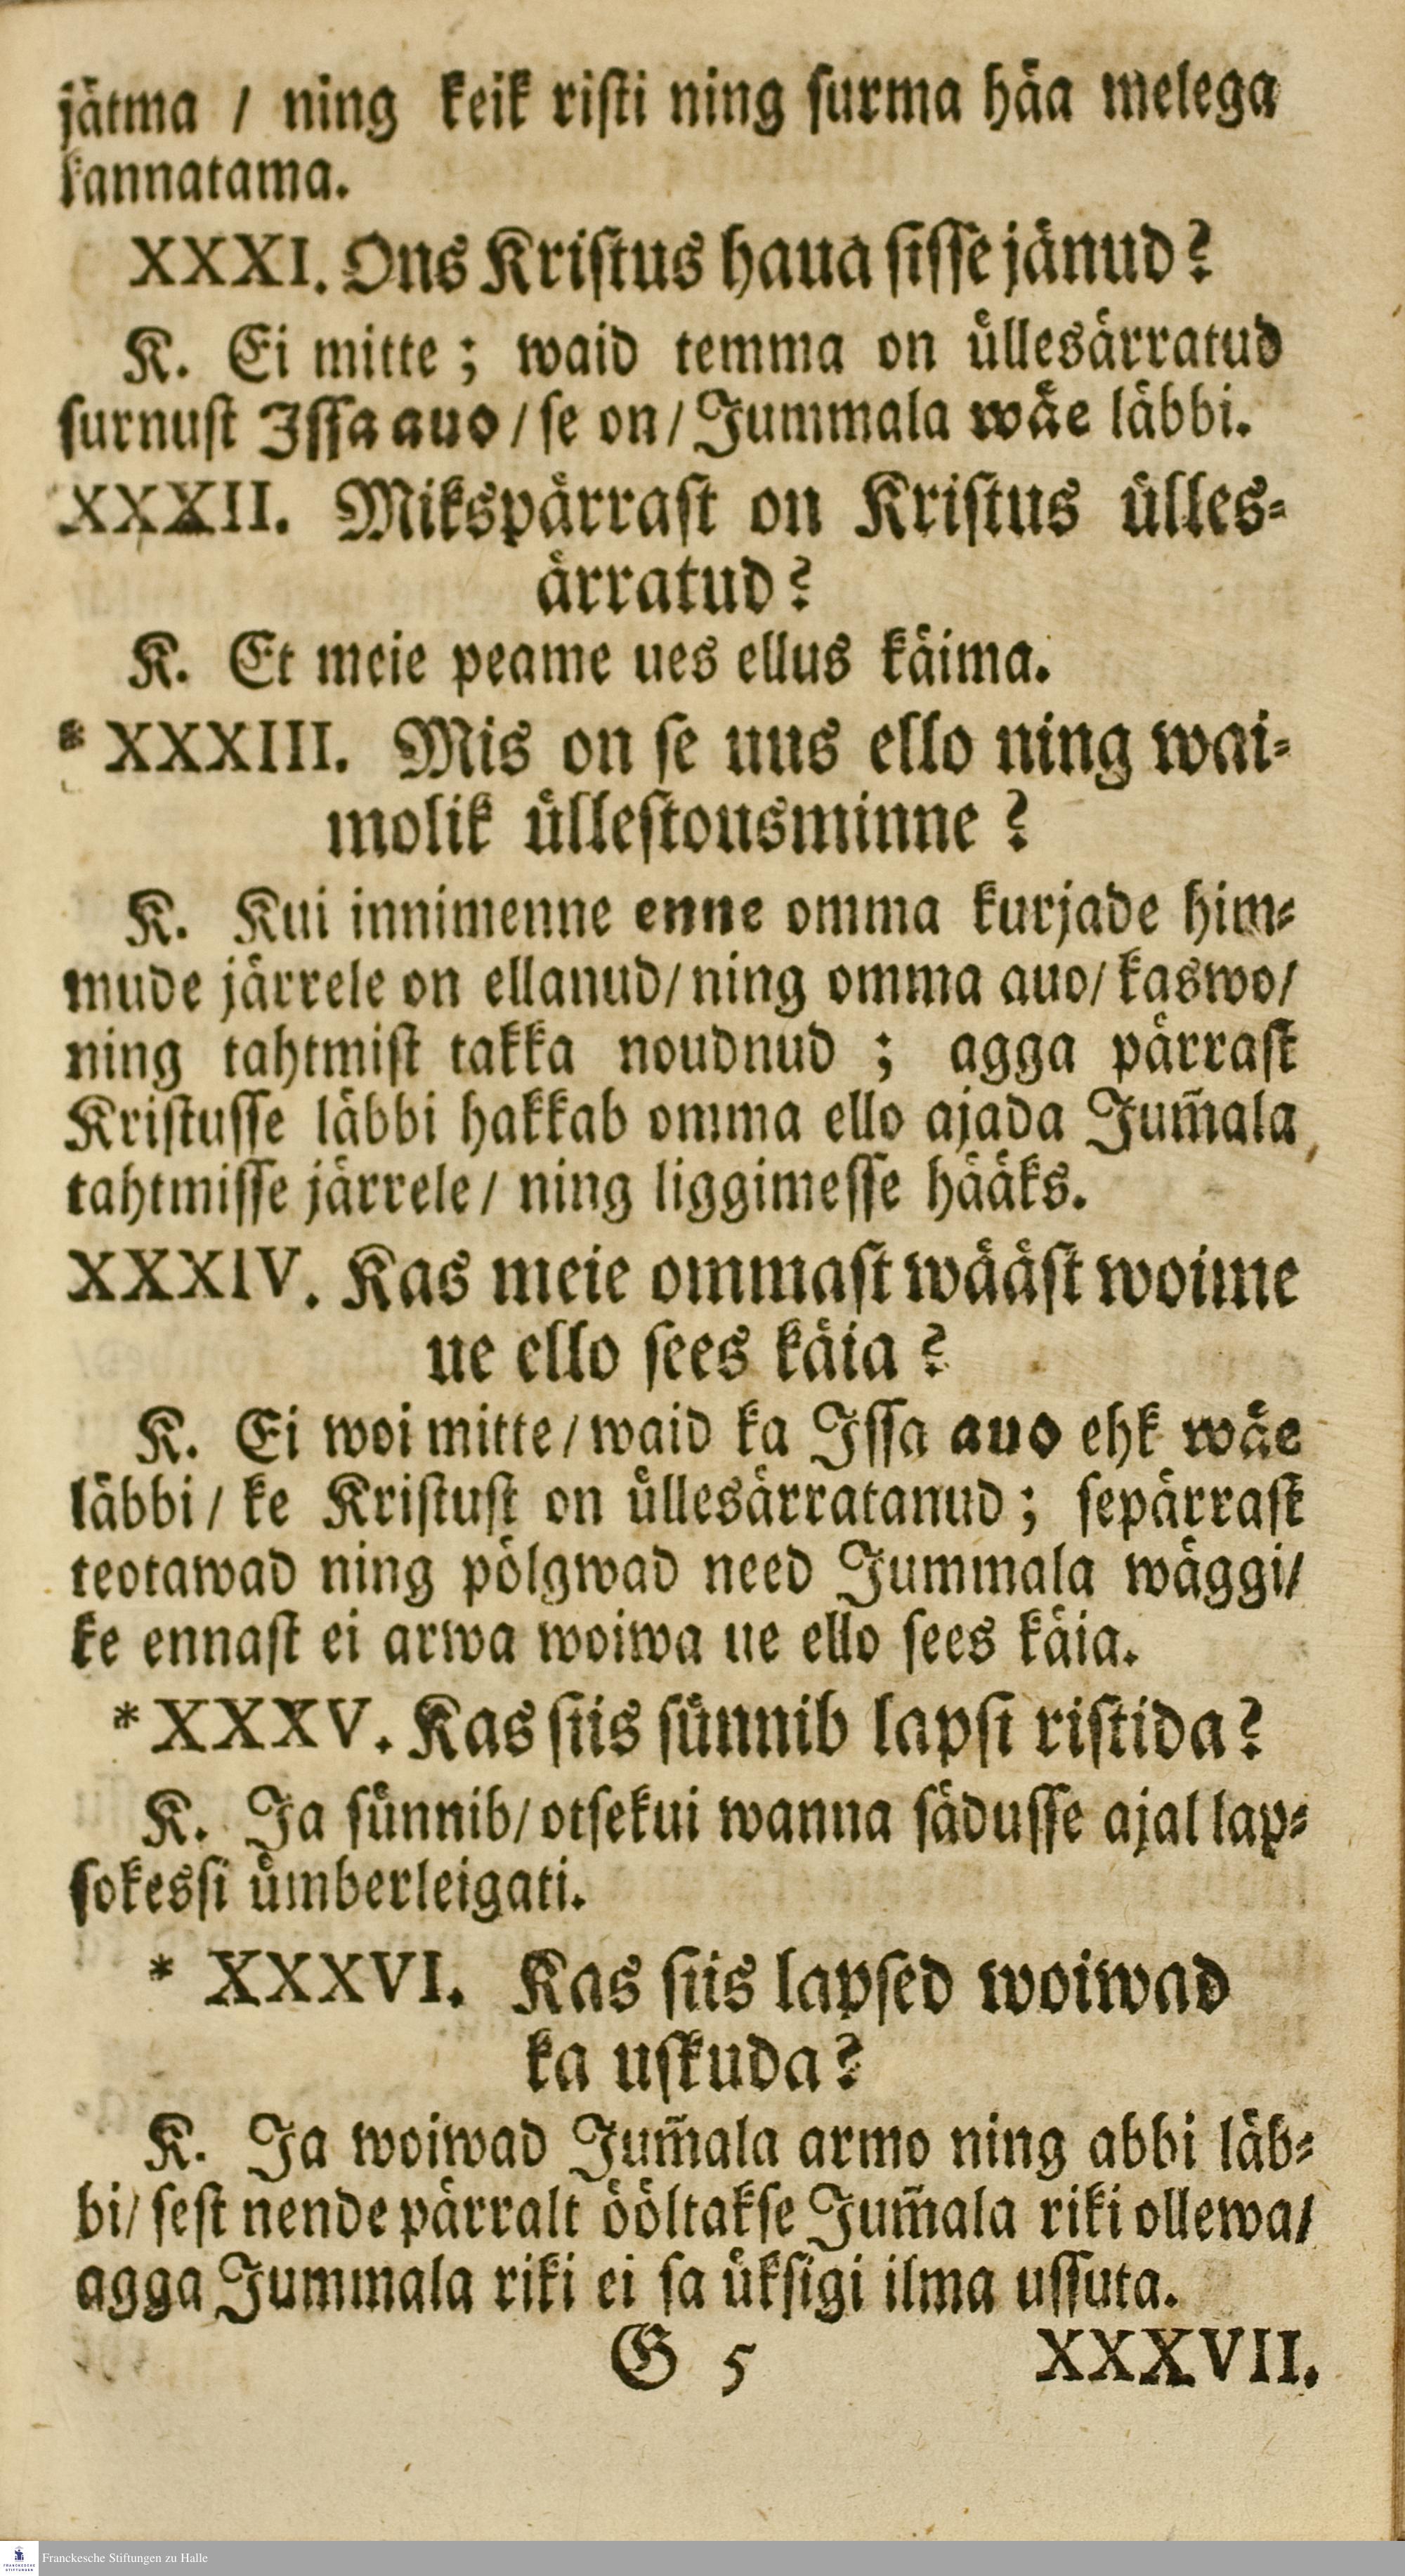 jätma / ning keik risti ning surma häa melega
kannatama.
XXXI. Ons Kristus haua sisse jänud?
K. Ei mitte; waid temma on üllesärratud
surnust Issa auo / se on / Jummala wäe läbbi.
XXXII. Mikspärrast on Kristus ülles-
ärratud?
K. Et meie peame ues ellus käima.
* XXXIII. Mis on se uus ello ning wai-
molik üllestousminne?
K. Kui innimenne enne omma kurjade him-
mude järrele on ellanud / ning omma auo / kaswo /
ning tahtmist takka noudnud; agga pärrast
Kristusse läbbi hakkab omma ello ajada Jum̃ala
tahtmisse järrele / ning liggimesse hääks.
XXXIV. Kas meie ommast wääst woime
ue ello sees käia?
K. Ei woi mitte / waid ka Issa auo ehk wäe
läbbi / ke Kristust on üllesärratanud; sepärrast
teotawad ning pölgwad need Jummala wäggi /
ke ennast ei arwa woiwa ue ello sees käia.
* XXXV. Kas siis sünnib lapsi ristida?
K. Ja sünnib / otsekui wanna sädusse ajal lap-
sokessi ümberleigati.
* XXXVI. Kas siis lapsed woiwad
ka uskuda?
K. Ja woiwad Jum̃ala armo ning abbi läb-
bi / sest nende pärralt ööltakse Jum̃ala riki ollewa /
agga Jummala riki ei sa üksigi ilma ussuta.
G 5 XXXVII.
FRANCKESCHE STIFTUNGEN
Franckesche Stiftungen zu Halle